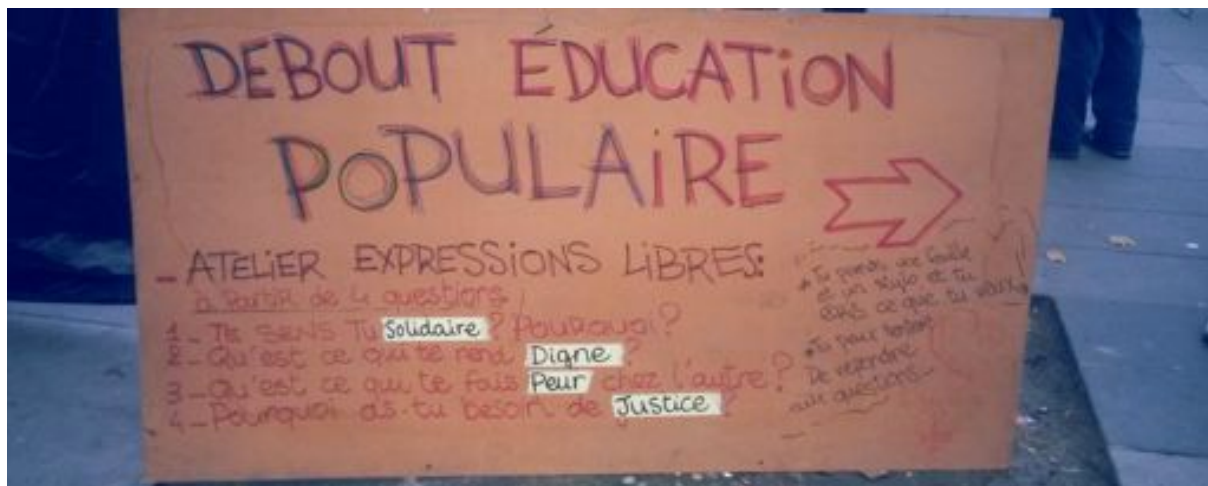 DEBOUT ÉDUCATION
POPULAIRE
- ATELIER EXPRESSIONS LIBRES:
à Partir de 4 questions
1 - Te sens tu Solidaire ? Pourquoi ?
2 - Qu'est ce qui te rend Digne ?
3 - Qu'est ce qui te fais Peur chez l'autre ?
4 - Pourquoi as-tu besoin de Justice ?
* Tu prends une feuille
et un stylo et tu
écris ce que tu veux !
* Tu peux
De répondre
aux questions